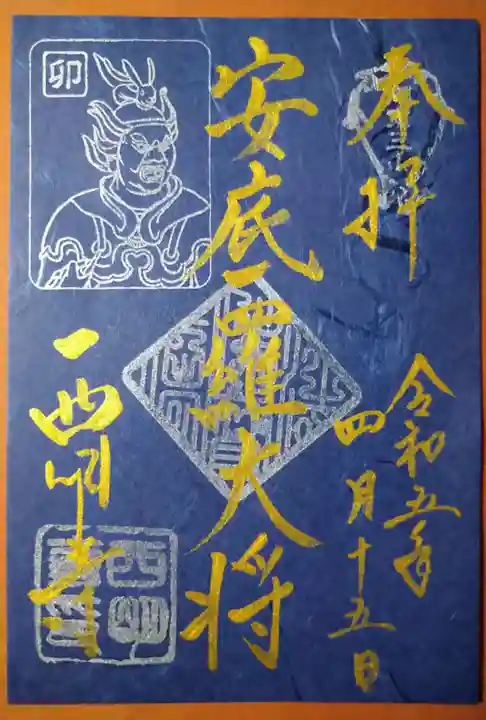 奉拝
令和五年
四月十五日
安底羅大将
卯
西明寺
西明